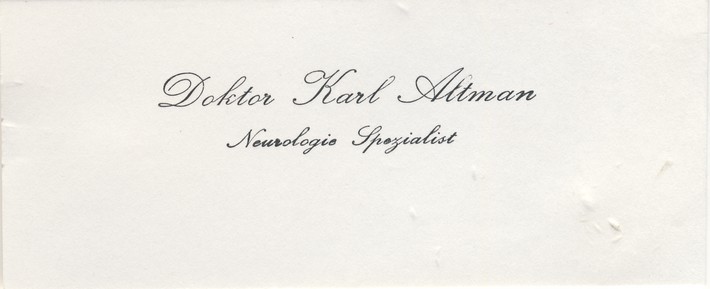 Doktor Karl Altman
Neurologie Spezialist